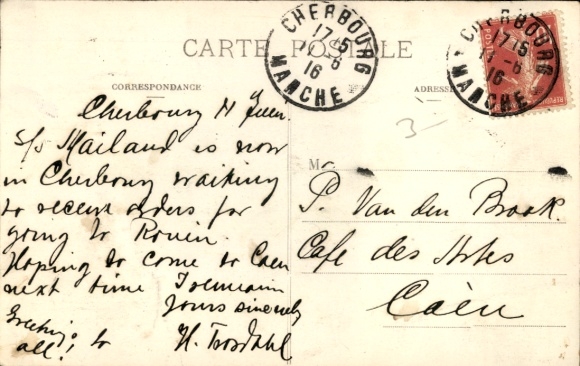 CARTE POSTALE
CORRESPONDANCE
ADRESSE
CHERBOURG
17 15
-6
16
MANCHE
CHERBOURG
17 15
-6
16
MANCHE
3-
Cherbourg
S/S Mailand is now
in Cherbourg waiting
to receive orders for
going to Rouen.
Hoping to come to Caen
next time I remain
Yours sincerely
Greetings to
all!
M
P. Van den Brook.
Café des Artes
Caen